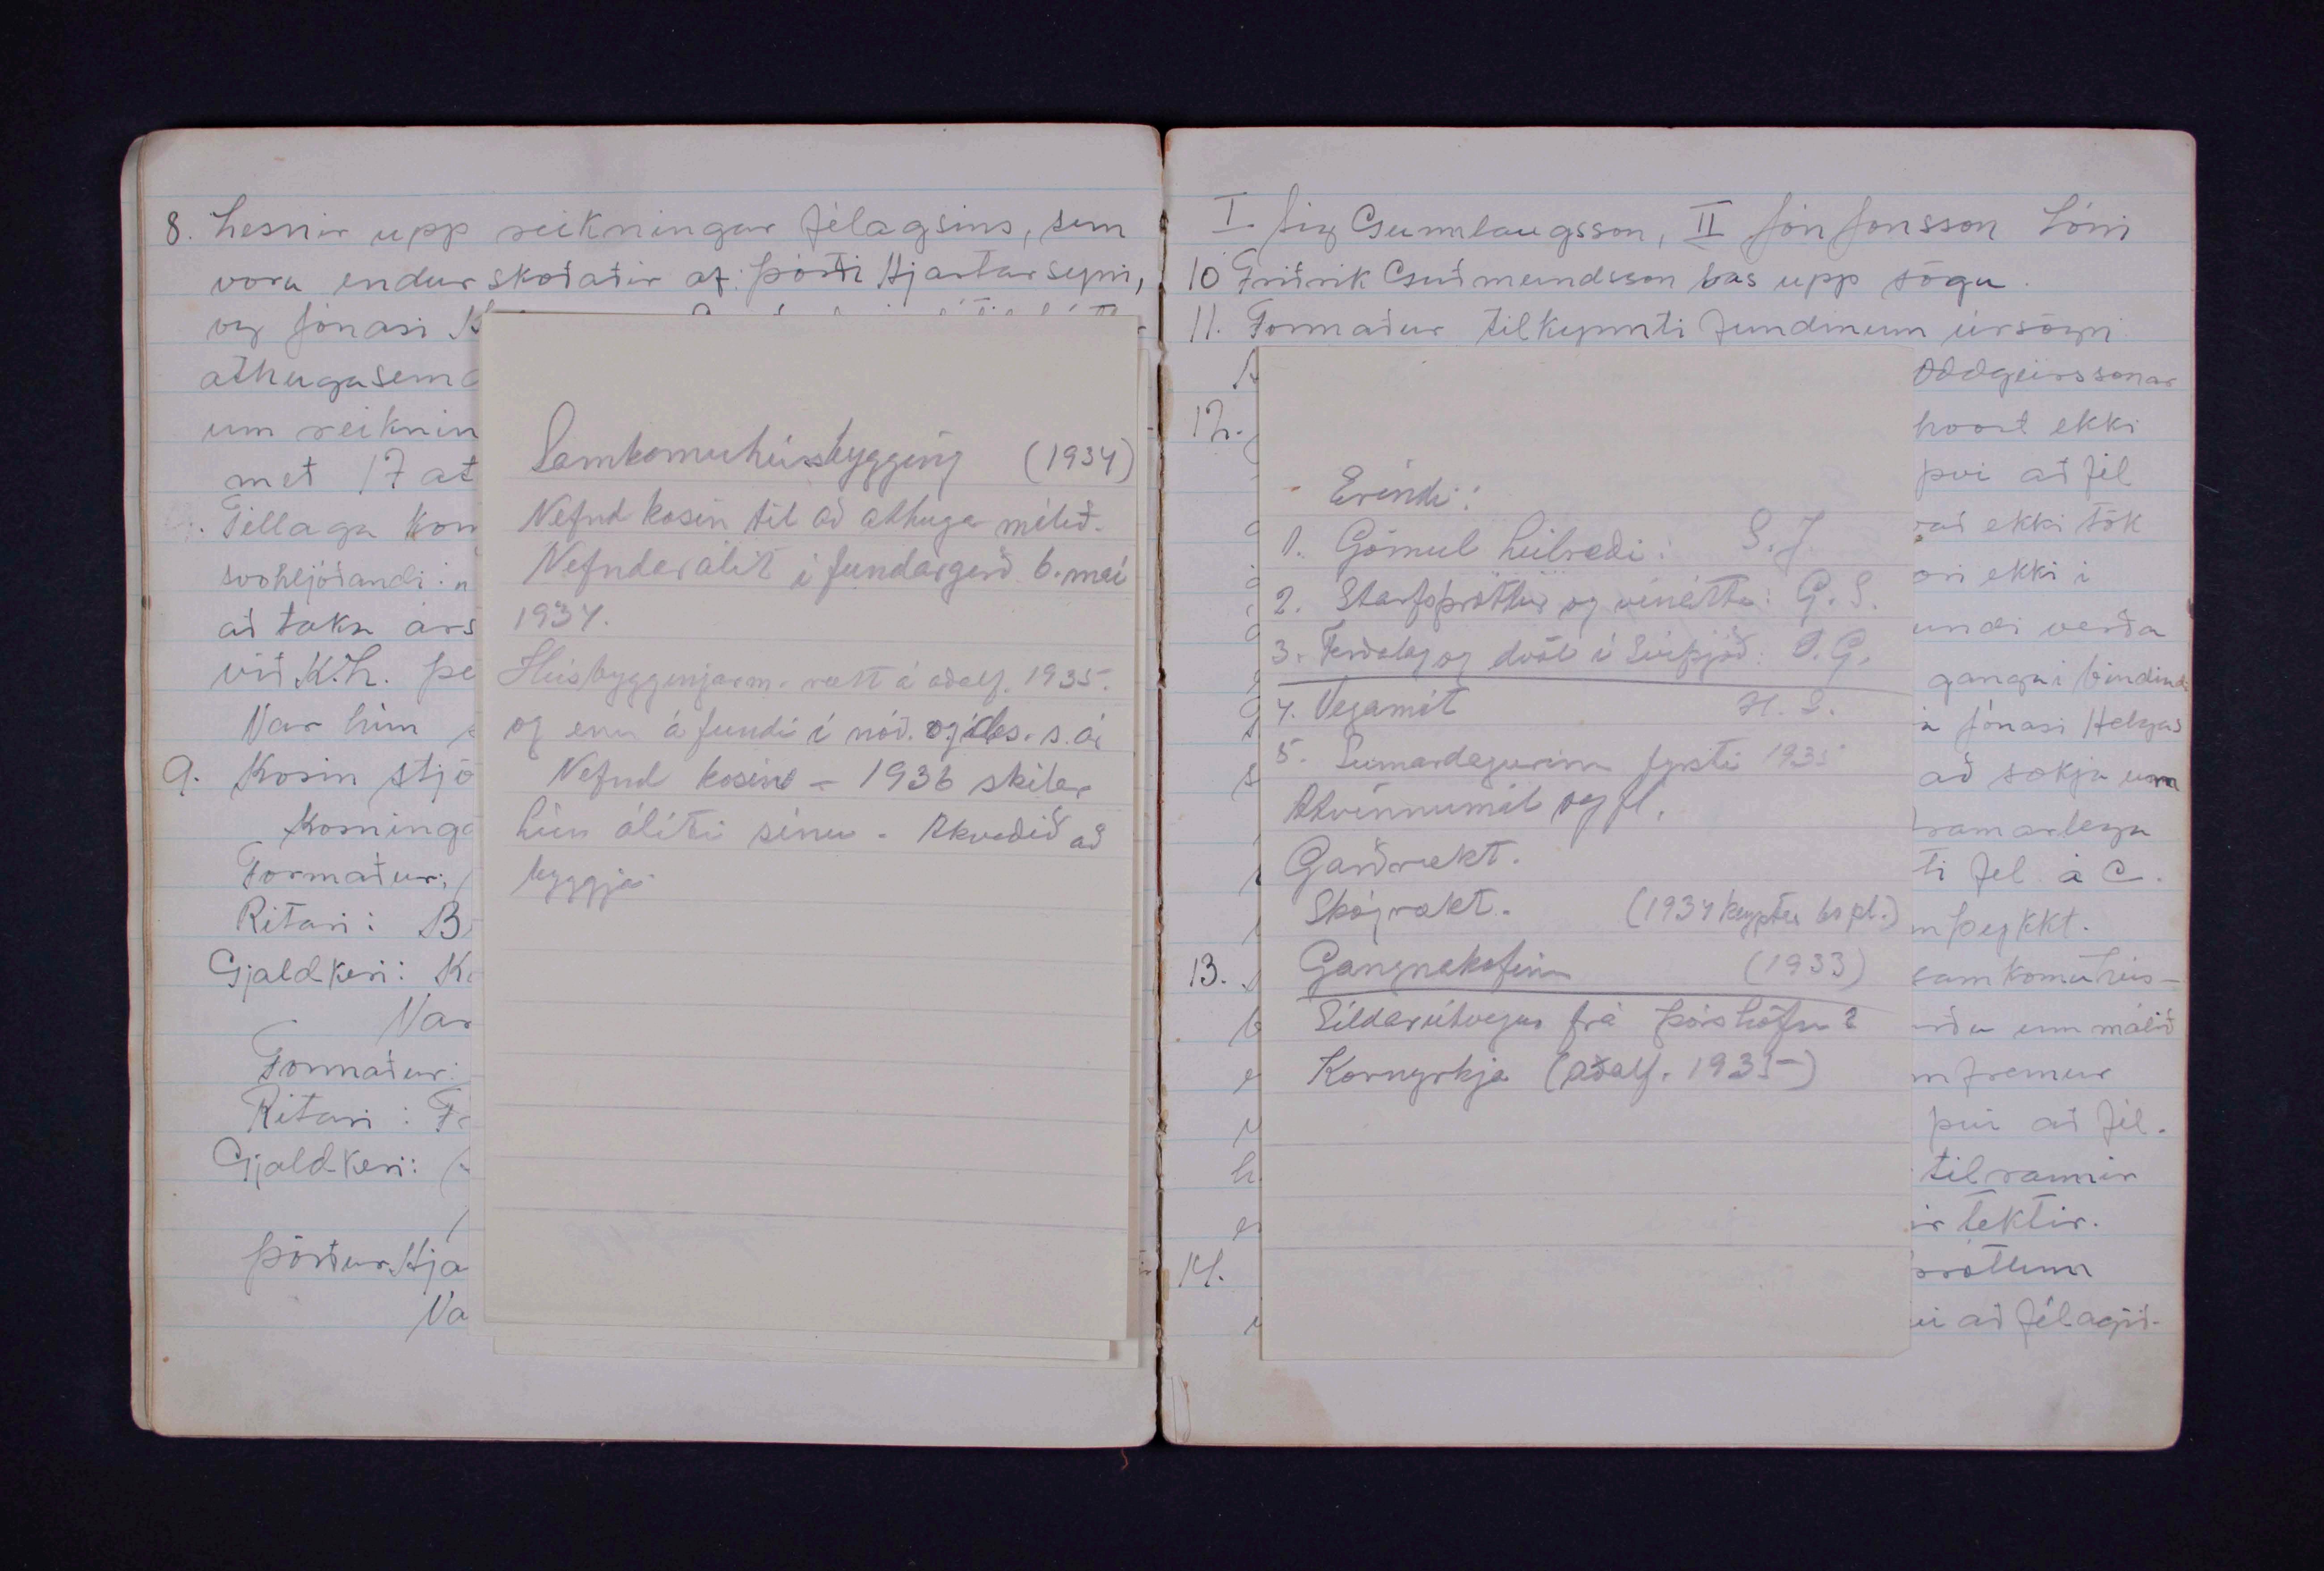 8. Lesnir upp reikningar fjelagsins, sem
voru endurskoðaðir af: Þórði Hjartarsyni,
og Jónasi
athugasemd
um reiknin
með 17 at
Tillaga kom
svohljóðandi:
að taka árs
við K.Þ. þe
Var hún
9. Kosin stjó
Kosninga
Formaður:
Ritari: B
Gjaldkeri: K
Var
Formaður:
Ritari: F
Gjaldkeri:
Þórður Hja
Va
Samkomuhúsbygging (1934)
Nefnd kosin til að athuga málið.
Nefndarálit í fundargerð 6. maí
1934.
Húsbyggingarm. rætt á aðalf. 1935.
og enn á fundi í nóv. og des. s. ár
Nefnd kosin - 1936 skilar
hún áliti sínu - Ákveðið að
byggja
I. Sig Gunnlaugsson, II Jón Jónsson Lóni
10 Friðrik Guðmundsson las upp sögu.
11. Formaður tilkynnti fundinum úrsögn
Oddgeirssonar
12. hvort ekki
því að fjel
vað ekki tók
ori ekki í
undi verða
ganga í bindindi
Jónasi Helgas
að sækja um
ramarlega
ti fel. á C.
mþykkt.
13. samkomuhús-
rðu um málið
m fremur
því að fjel.
tilraunir
ir tektir.
14. próttum
ui að félagið-
Erindi:
1. Gömul heilræði: S.J.
2. Starfsþróttur og vinátta: G.S.
3. Ferðalag og dvöl í Svíþjóð: S.G.
4. Vegamót H.S.
5. Sumardagurinn fyrsti 1935
Atvinnumál og fl.
Garðrækt.
Skógrækt. (1934 keyptar 60 pl.)
Gangnakofinn (1933)
Síldarútvegur frá Þórshöfn?
Kornyrkja (aðalf. 1935-)